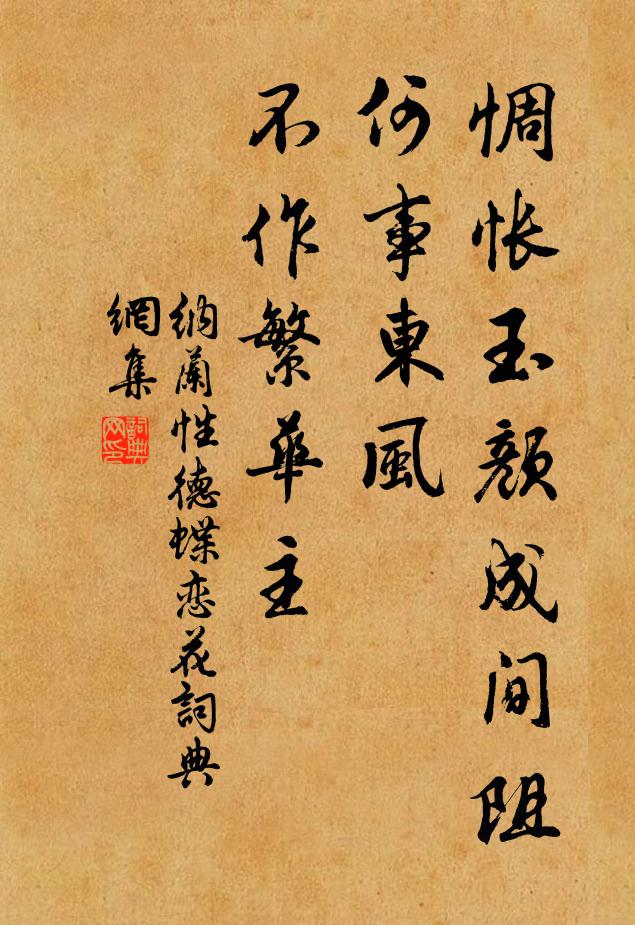 惆怅玉颜成间阻
何事東風
不作繁華主
納蘭性德蝶恋花詞典
網集
詞典网印